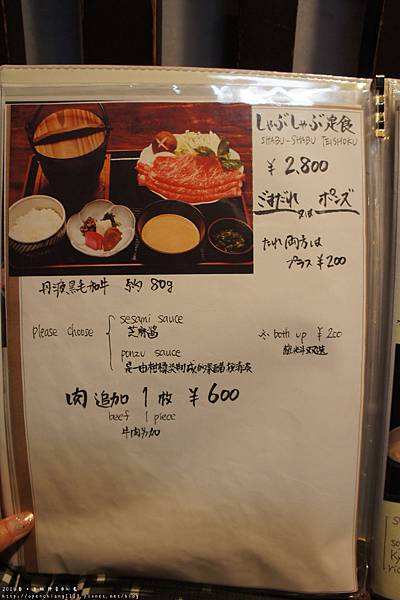 しゃぶしゃぶ定食
SHABU-SHABU TEISHOKU
¥2,800
ごまだれ 又は ポンズ
たれ両方は
プラス ¥200
丹波黒毛和牛 約80g
please choose
sesami sauce
芝麻醤
ponzu sauce
是一由柑橘類製成的
both up ¥200
醬料双選
肉追加 1枚 ¥600
beef 1 piece
牛肉多加